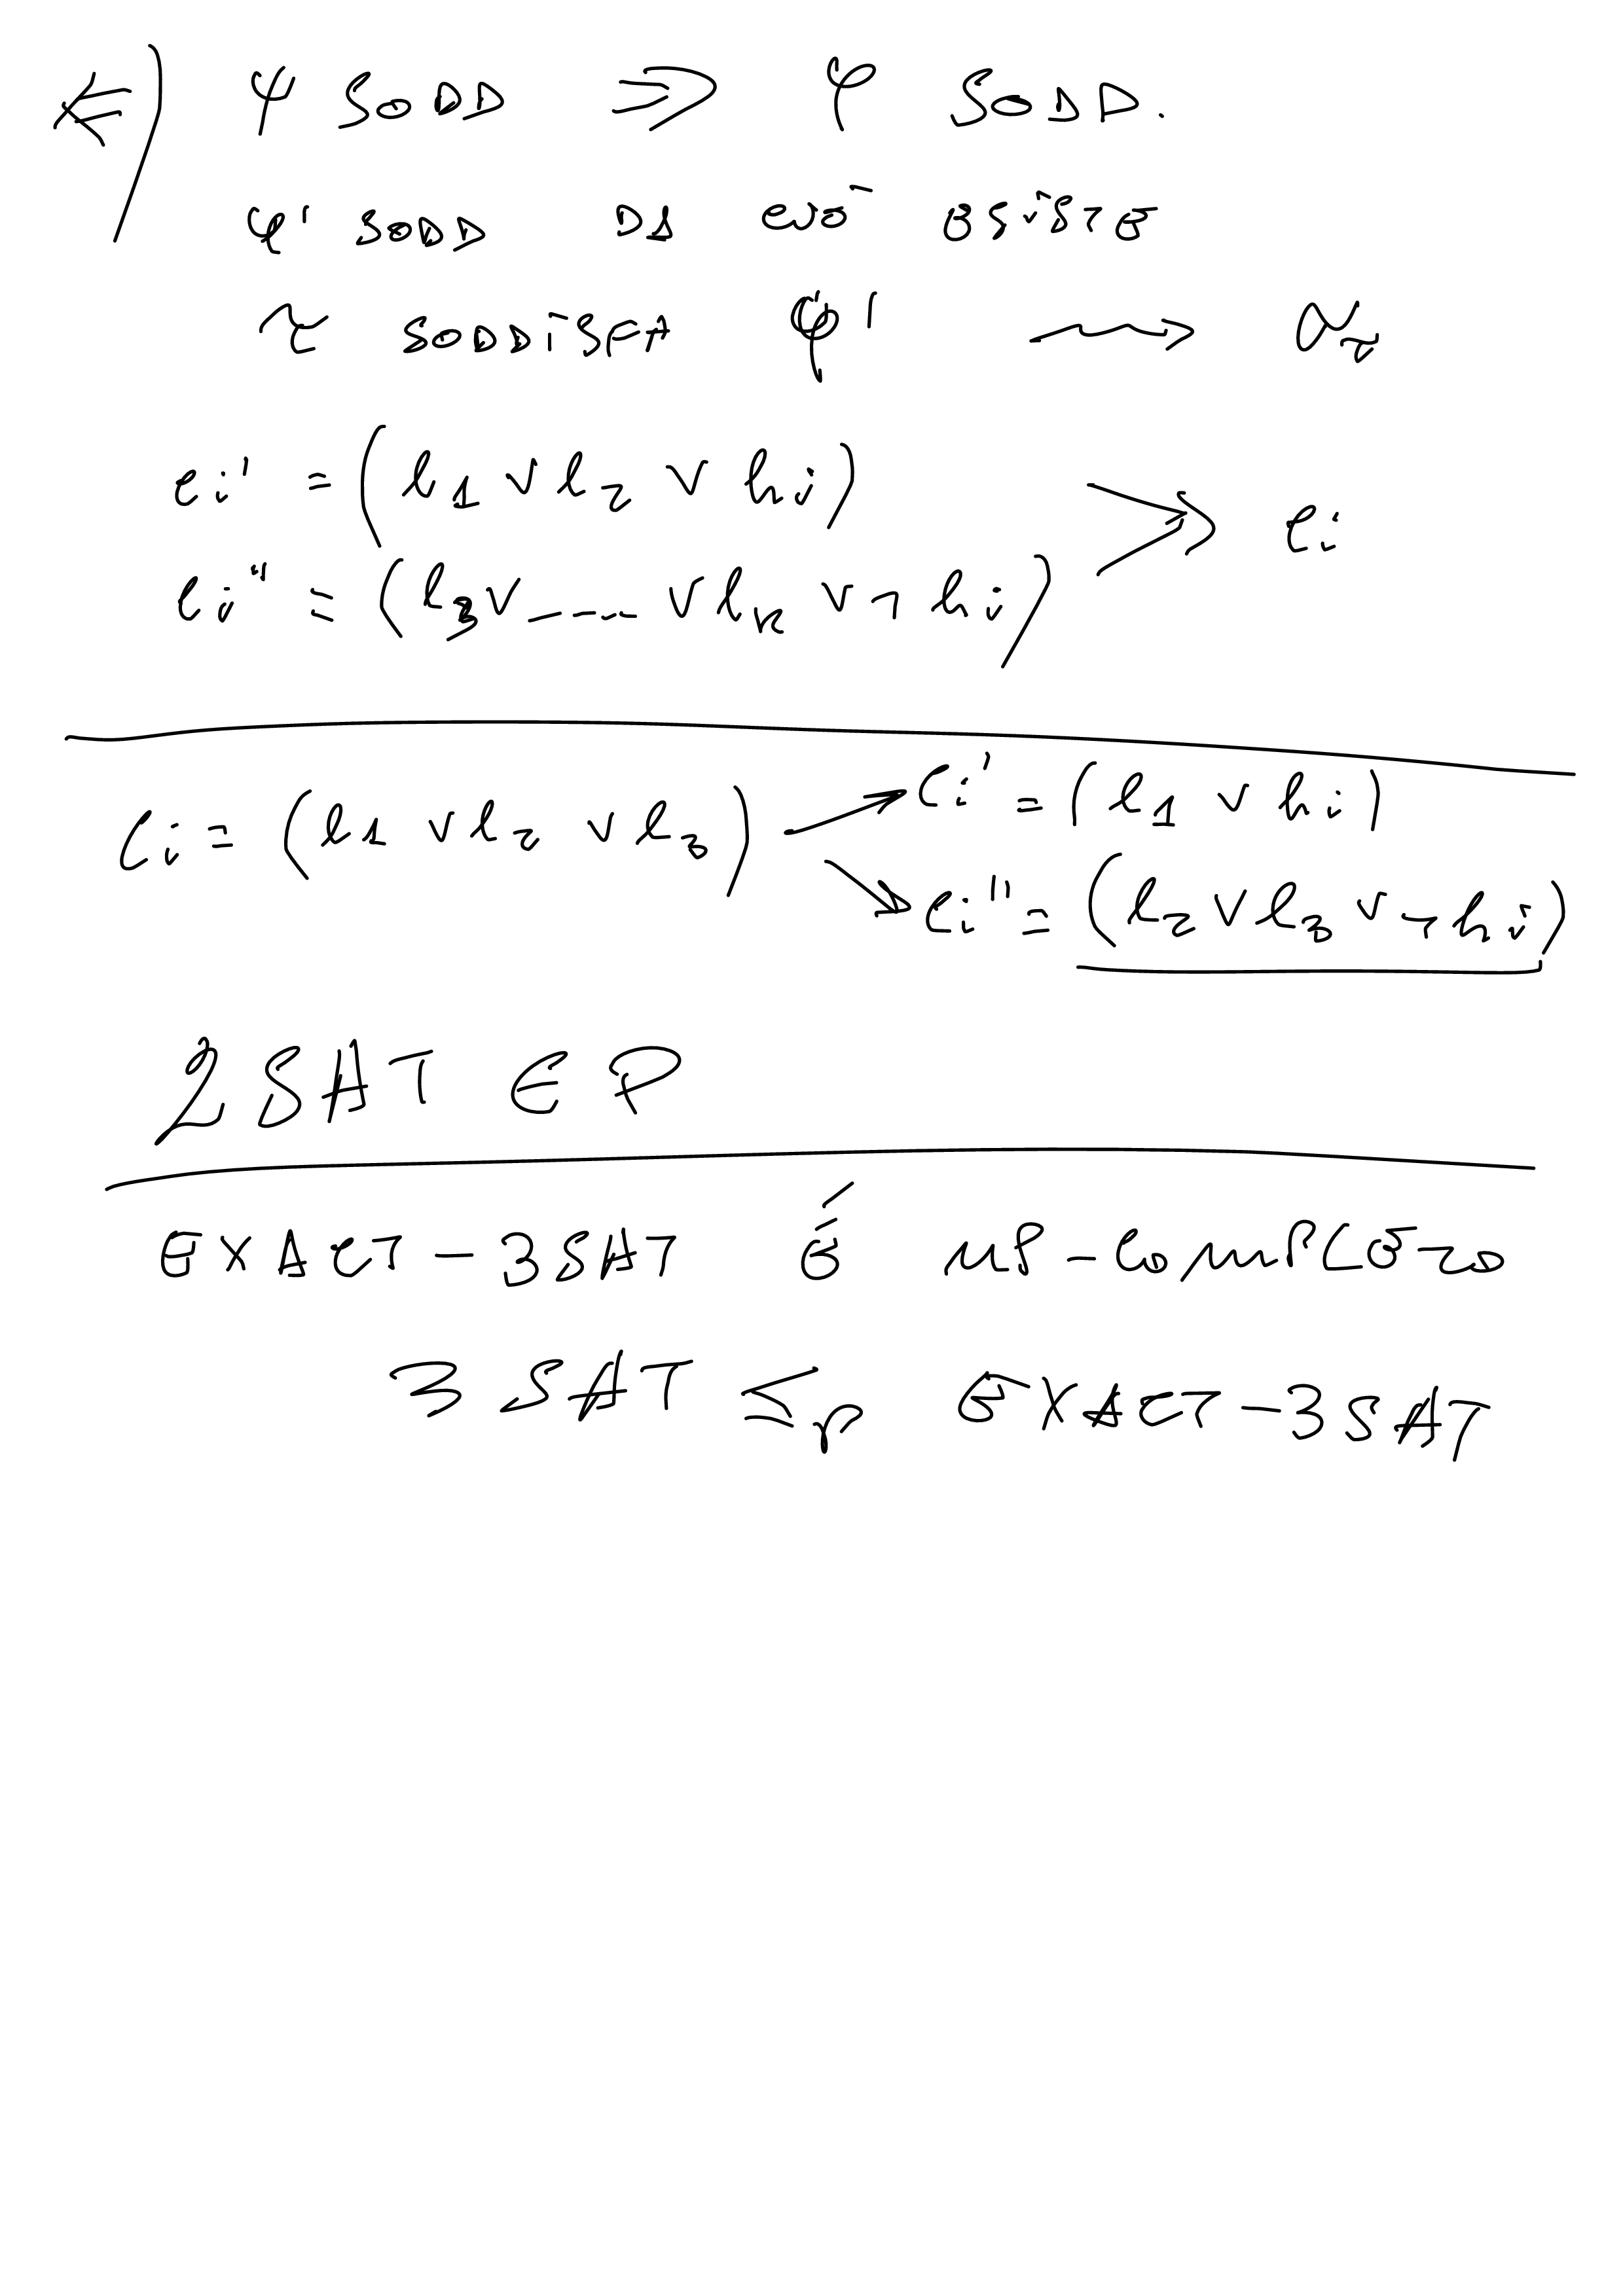 ⇐) φ SODD ⇒ φ SODD.
φ' SODD DA CUI ESISTE
τ SODDISFA φ' ⟶ α_τ
C_i' = (l_1 ∨ l_2 ∨ h_i)
⇒ C_i
C_i'' = (l_3 ∨ ---- ∨ l_k ∨ ¬ h_i)
C_i = (l_1 ∨ l_2 ∨ l_3) ↗ C_i' = (l_1 ∨ h_i)
↘ C_i'' = (l_2 ∨ l_3 ∨ ¬ h_i)
2SAT ∈ P
EXACT-3SAT É NP-COMPLETO
3SAT ≤_p EXACT-3SAT